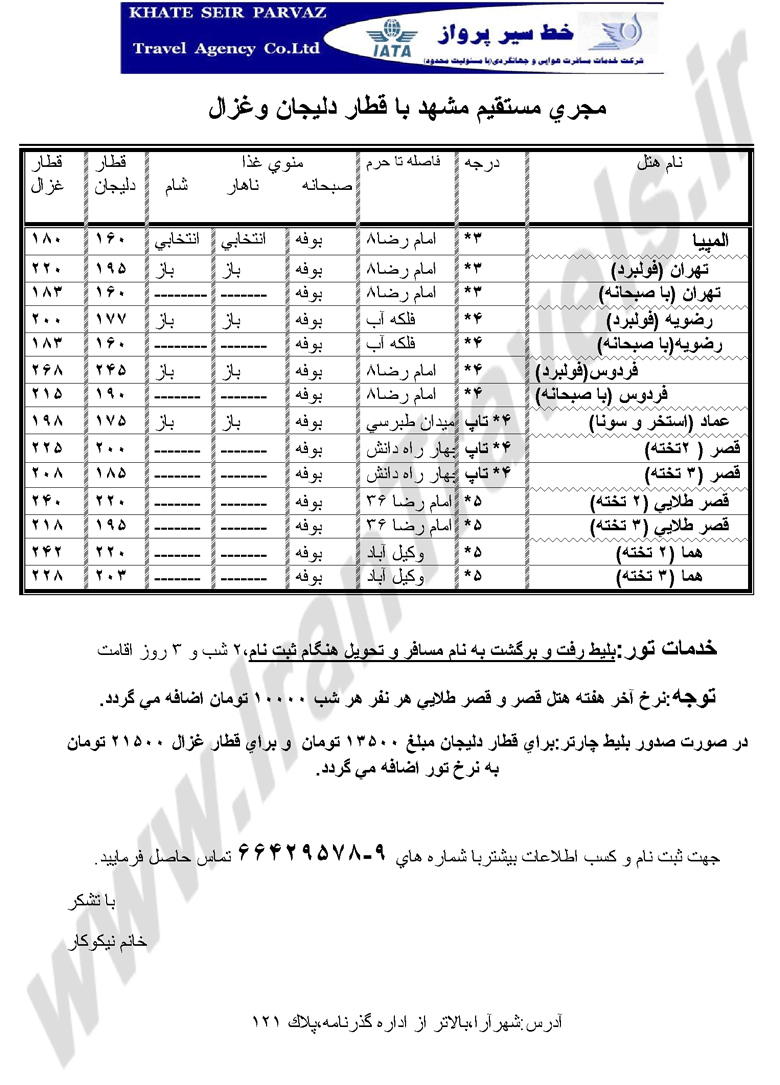 KHATE SEIR PARVAZ
Travel Agency Co.Ltd
IATA
خط سیر پرواز
شرکت خدمات مسافرت هوایی و جهانگردی(با مسئولیت محدود)
مجري مستقيم مشهد با قطار دليجان وغزال
نام هتل درجه فاصله تا حرم منوي غذا قطار قطار
صبحانه ناهار شام دليجان غزال
المپيا ۳* امام رضا۸ بوفه انتخابي انتخابي ۱۶۰ ۱۸۰
تهران (فولبرد) ۳* امام رضا۸ بوفه باز باز ۱۹۵ ۲۲۰
تهران (با صبحانه) ۳* امام رضا۸ بوفه ------- -------- ۱۶۰ ۱۸۳
رضويه (فولبرد) ۴* فلکه آب بوفه باز باز ۱۷۷ ۲۰۰
رضويه(با صبحانه) ۴* فلکه آب بوفه ------- -------- ۱۶۰ ۱۸۳
فردوس(فولبرد) ۴* امام رضا۸ بوفه باز باز ۲۴۵ ۲۶۸
فردوس (با صبحانه) ۴* امام رضا۸ بوفه ------- ------- ۱۹۰ ۲۱۵
عماد (استخر و سونا) ۴* تاپ ميدان طبرسي بوفه باز باز ۱۷۵ ۱۹۸
قصر ( ۲تخته) ۴* تاپ چهار راه دانش بوفه ------- ------- ۲۰۰ ۲۲۵
قصر (۳ تخته) ۴* تاپ چهار راه دانش بوفه ------- ------- ۱۸۵ ۲۰۸
قصر طلايي (۲ تخته) ۵* امام رضا ۳۶ بوفه ------- ------- ۲۲۰ ۲۴۰
قصر طلايي (۳ تخته) ۵* امام رضا ۳۶ بوفه ------- ------- ۱۹۵ ۲۱۸
هما (۲ تخته) ۵* وكيل آباد بوفه ------- ------- ۲۲۰ ۲۴۲
هما (۳ تخته) ۵* وكيل آباد بوفه ------- ------- ۲۰۳ ۲۲۸
خدمات تور:بليط رفت و برگشت به نام مسافر و تحويل هنگام ثبت نام،۲ شب و ۳ روز اقامت
توجه:نرخ آخر هفته هتل قصر و قصر طلايي هر نفر هر شب ۱۰۰۰۰ تومان اضافه مي گردد.
در صورت صدور بليط چارتر:براي قطار دليجان مبلغ ۱۳۵۰۰ تومان و براي قطار غزال ۲۱۵۰۰ تومان
به نرخ تور اضافه مي گردد.
جهت ثبت نام و کسب اطلاعات بيشتربا شماره هاي ۹-۶۶۴۲۹۵۷۸ تماس حاصل فرماييد.
با تشكر
خانم نيكوكار
آدرس:شهرآرا،بالاتر از اداره گذرنامه،پلاك ۱۲۱
www.IranTravels.ir